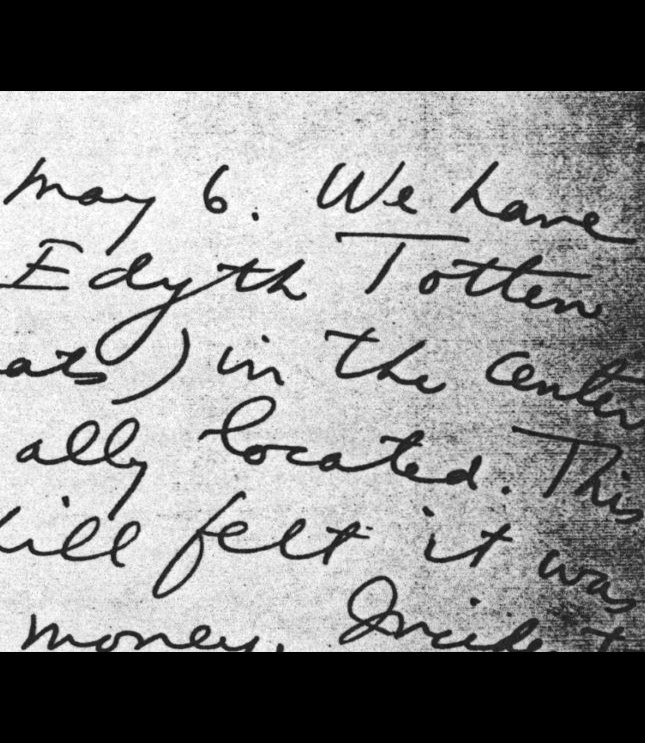 May 6. We have
Edyth Totten
ats) in the center
ally located. This
will felt it was
money.